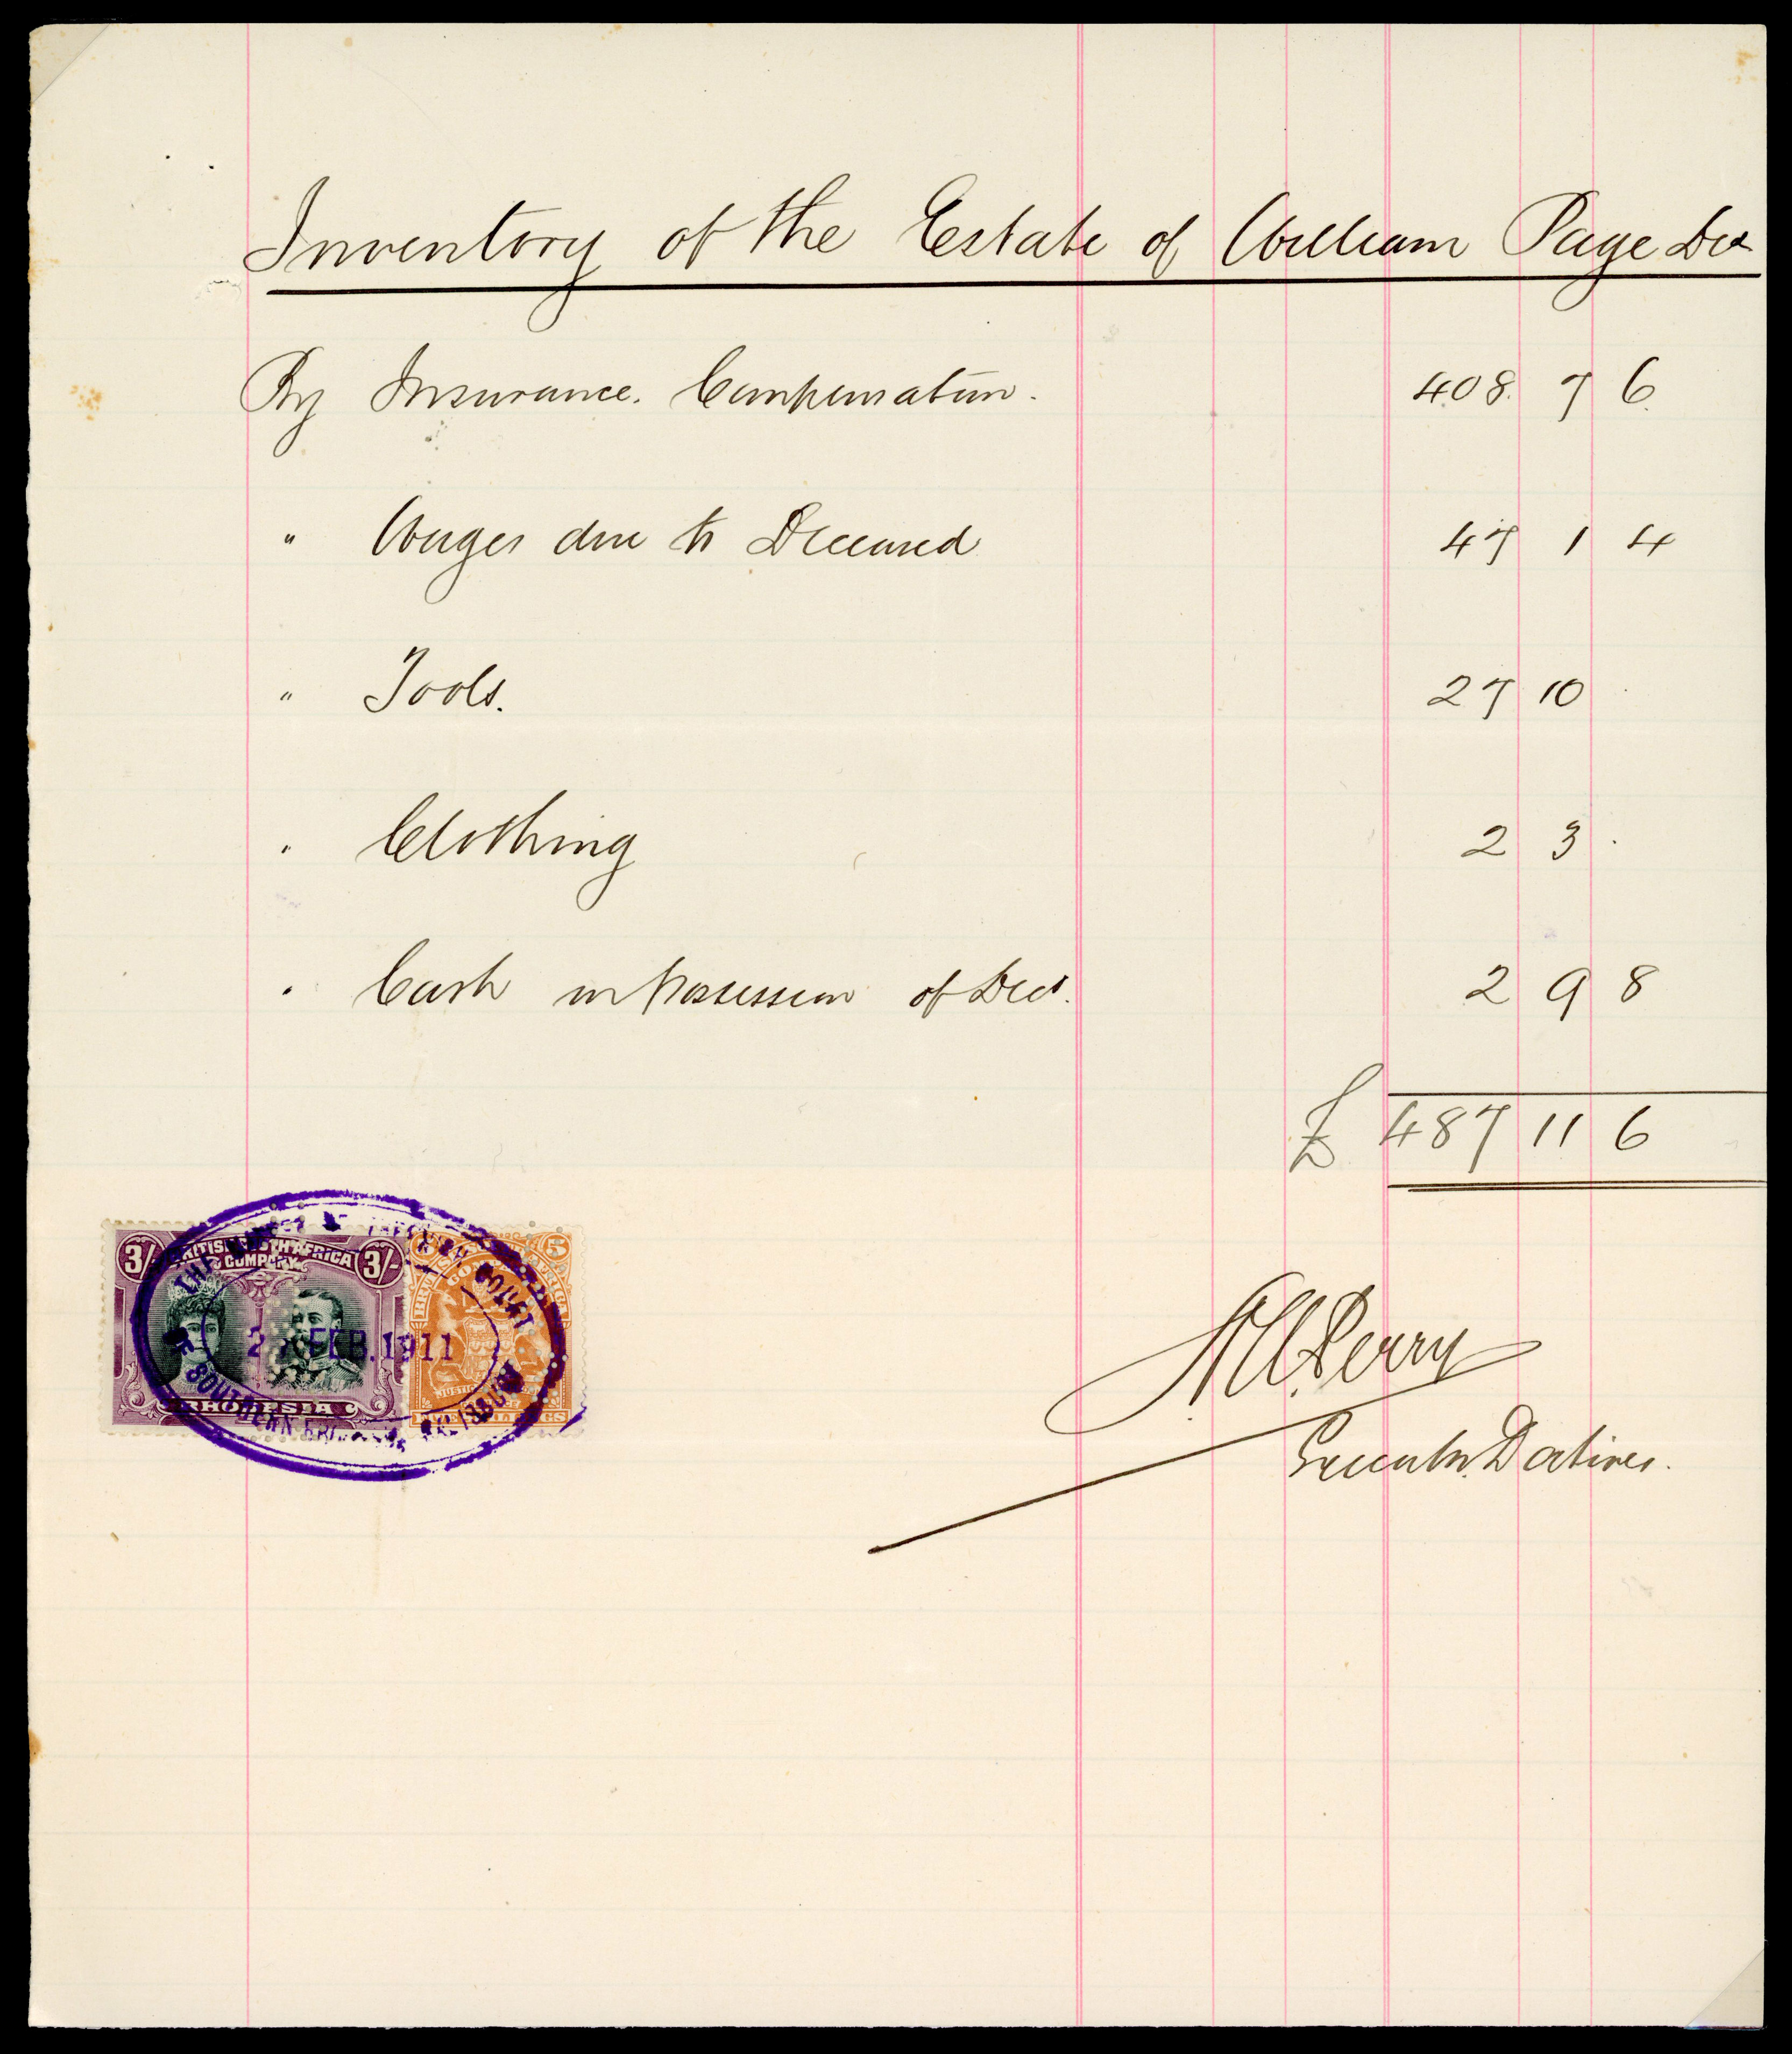 Inventory of the Estate of William Page Dec
By Insurance. Compensation. 408. 7 6.
" Wages due to Deceased 47 1 4
" Tools. 27 10 .
" Clothing 2 3 .
" Cash in Possession of Decd. 2 9 8
£ 487 11 6
3/- BRITISH SOUTH AFRICA COMPANY 3/-
RHODESIA
5
JUSTICE
THE HIGH COURT
OF SOUTHERN RHODESIA SALISBURY
FEB. 1911
Perry
Executor Dative.